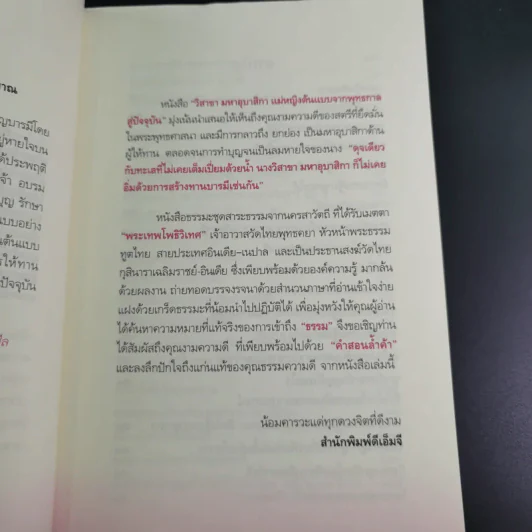 าณ
ญบารมีโดย
หนังสือ "วิสาขา มหาอุบาสิกา แม่หญิงต้นแบบจากพุทธกาล
สู่ปัจจุบัน" มุ่งเน้นนำเสนอให้เห็นถึงคุณงามความดีของสตรีที่ยึดมั่น
ในพระพุทธศาสนา และมีการกล่าวถึง ยกย่อง เป็นมหาอุบาสิกาด้าน
ผู้ให้ทาน ตลอดจนการทำบุญจนเป็นลมหายใจของนาง "ดุจเดียว
กับทะเลที่ไม่เคยเต็มเปี่ยมด้วยน้ำ นางวิสาขา มหาอุบาสิกา ก็ไม่เคย
อิ่มด้วยการสร้างทานบารมีเช่นกัน"
หนังสือธรรมะชุดสาระธรรมจากนครสาวัตถี ที่ได้รับเมตตา
"พระเทพโพธิวิเทศ" เจ้าอาวาสวัดไทยพุทธคยา หัวหน้าพระธรรม
ทูตไทย สายประเทศอินเดีย-เนปาล และเป็นประธานสงฆ์วัดไทย
กุสินาราเฉลิมราชย์-อินเดีย ซึ่งเพียบพร้อมด้วยองค์ความรู้ มากล้น
ด้วยผลงาน ถ่ายทอดบรรจงรจนาด้วยสำนวนภาษาที่อ่านเข้าใจง่าย
แฝงด้วยเกร็ดธรรมะที่น้อมนำไปปฏิบัติได้ เพื่อมุ่งหวังให้คุณผู้อ่าน
ได้ค้นหาความหมายที่แท้จริงของการเข้าถึง "ธรรม" จึงขอเชิญท่าน
ได้สัมผัสถึงคุณงามความดี ที่เพียบพร้อมไปด้วย "คำสอนล้ำค้า"
และลงลึกปักใจถึงแก่นแท้ของคุณธรรมความดี จากหนังสือเล่มนี้
น้อมคารวะแด่ทุกดวงจิตที่ดีงาม
สำนักพิมพ์ดีเอ็มจี